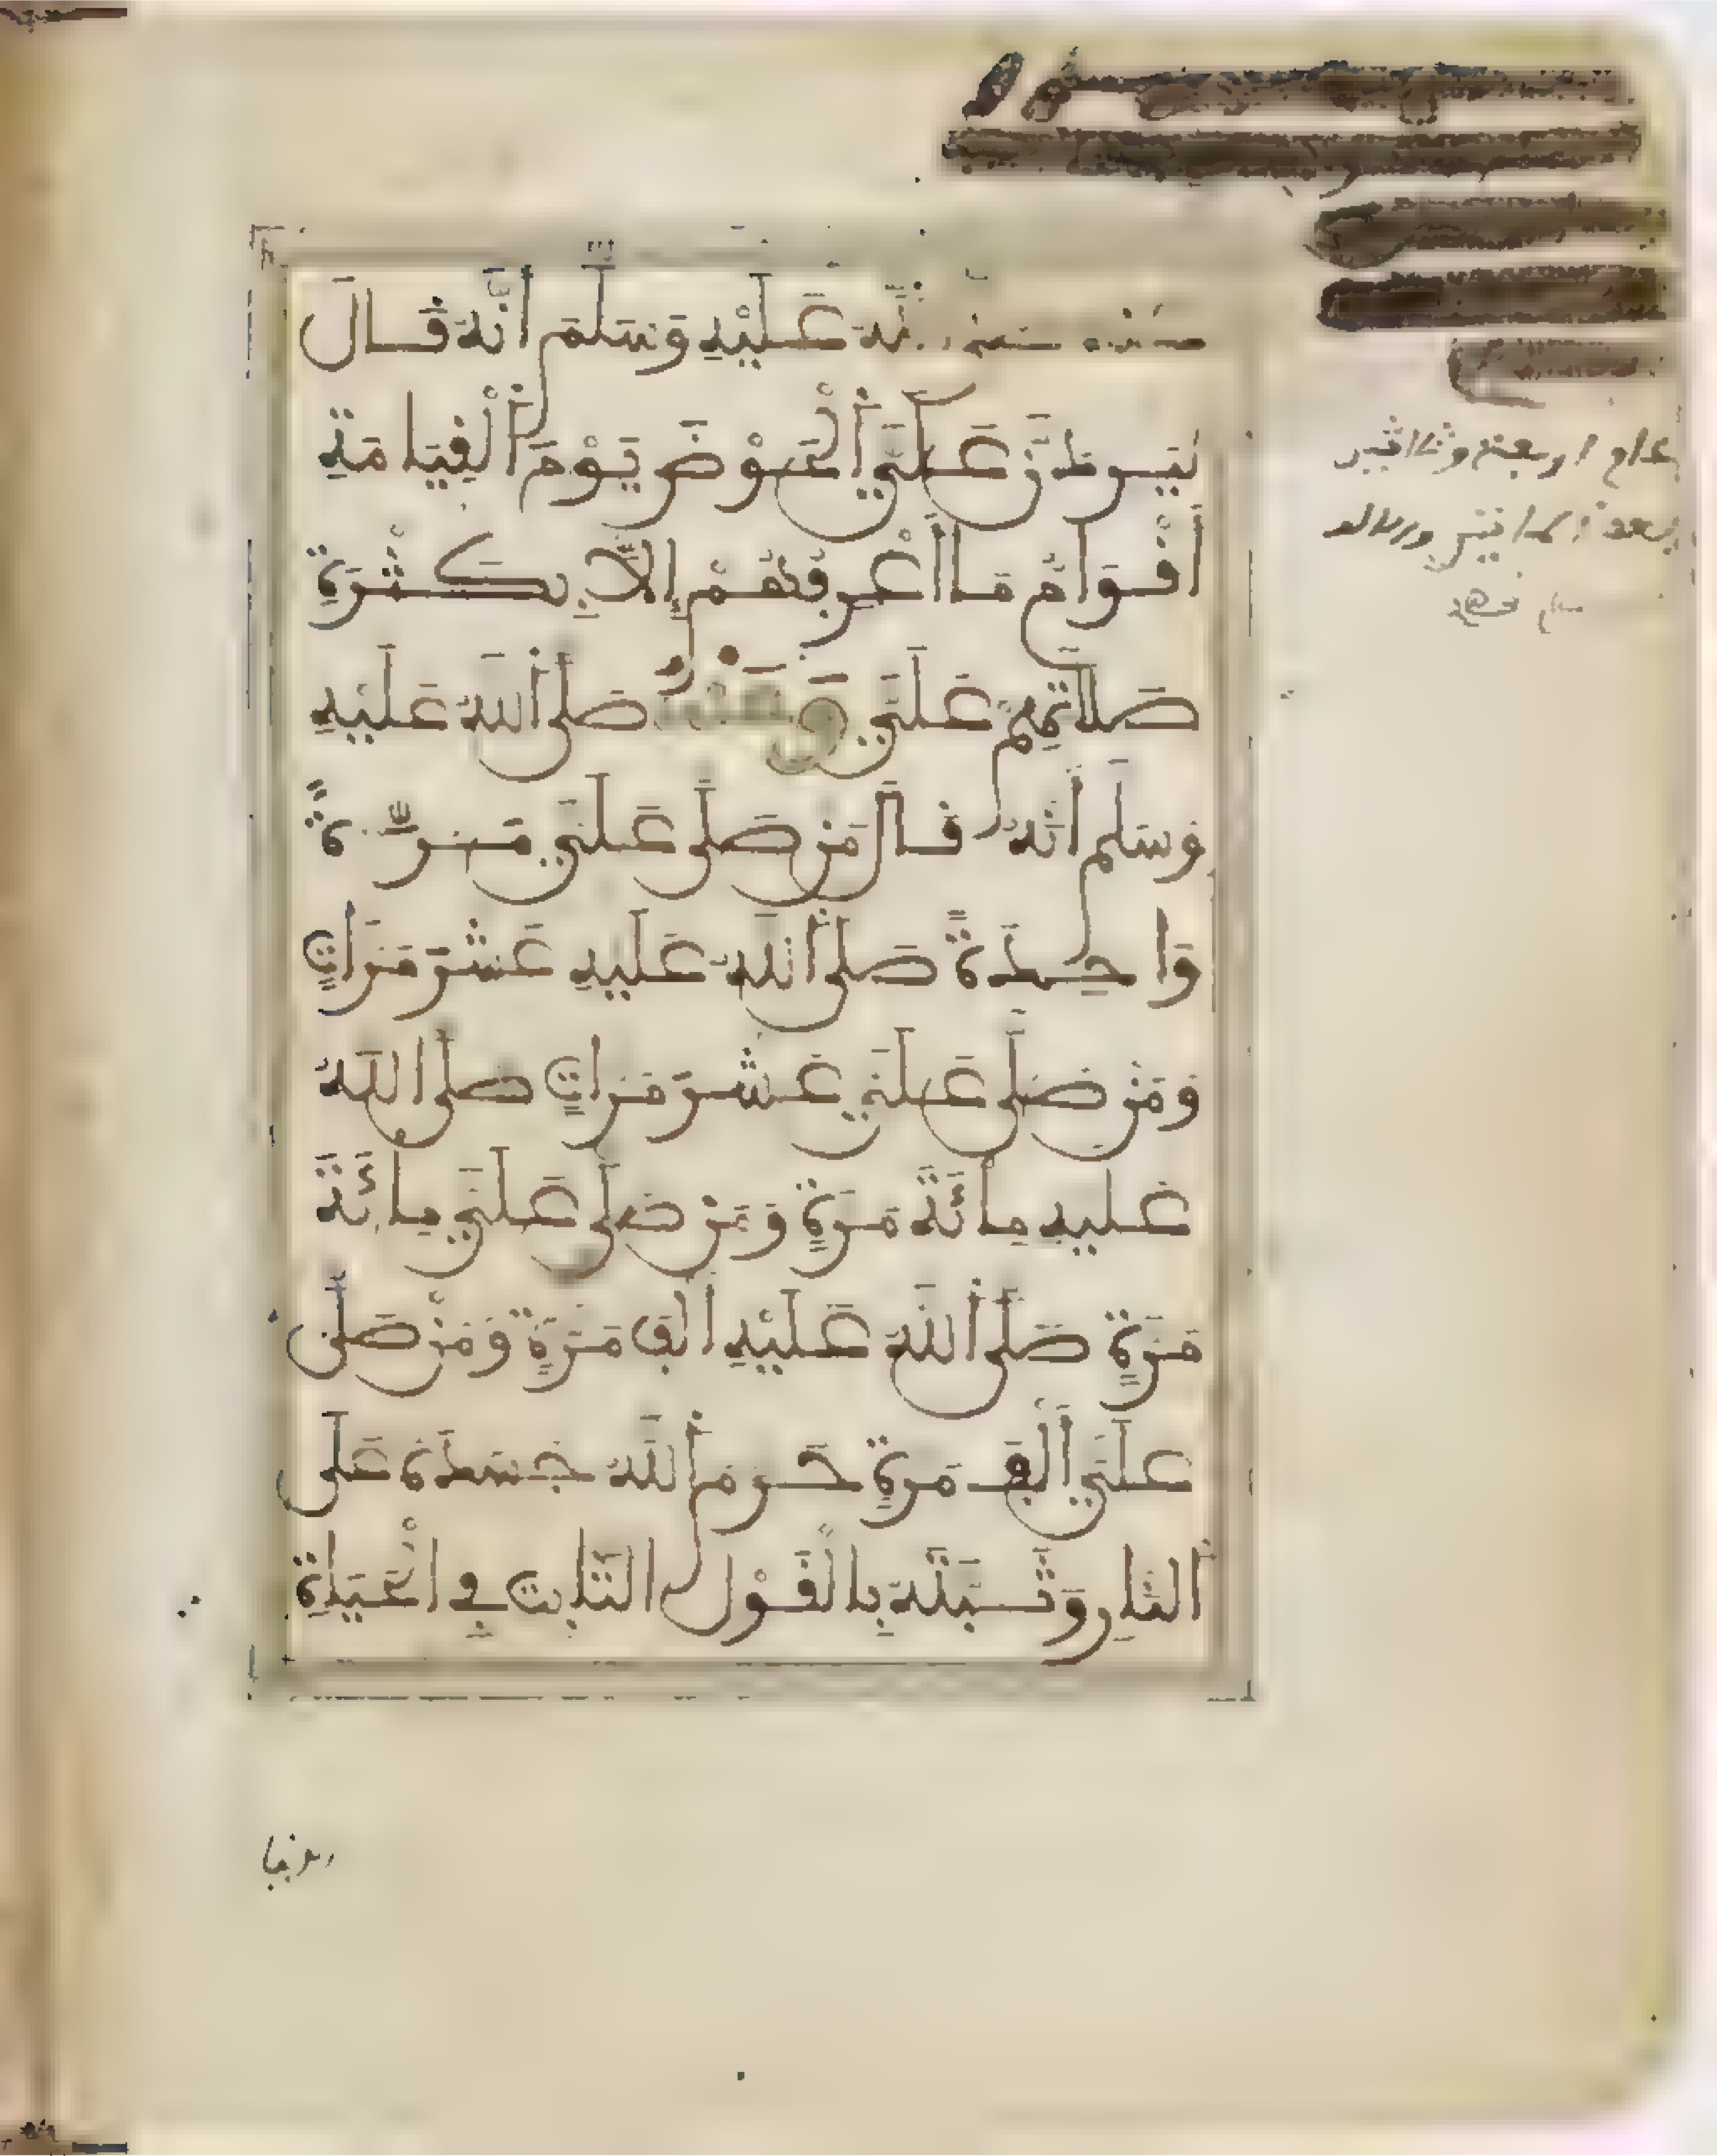 عَلَيْهِ وَسَلَّمَ أَنَّهُ قَالَ
لَيَرِدَنَّ عَلَى الْحَوْضِ يَوْمَ الْقِيَامَةِ
أَقْوَامٌ مَا أَعْرِفُهُمْ إِلَّا بِكَثْرَةِ
صَلَاتِهِمْ عَلَيَّ وَعَنْهُ صَلَّى اللَّهُ عَلَيْهِ
وَسَلَّمَ أَنَّهُ قَالَ مَنْ صَلَّى عَلَيَّ مَرَّةً
وَاحِدَةً صَلَّى اللَّهُ عَلَيْهِ عَشْرَ مَرَّاتٍ
وَمَنْ صَلَّى عَلَيَّ عَشْرَ مَرَّاتٍ صَلَّى اللَّهُ
عَلَيْهِ مِائَةَ مَرَّةٍ وَمَنْ صَلَّى عَلَيَّ مِائَةَ
مَرَّةٍ صَلَّى اللَّهُ عَلَيْهِ أَلْفَ مَرَّةٍ وَمَنْ صَلَّى
عَلَيَّ أَلْفَ مَرَّةٍ حَرَّمَ اللَّهُ جَسَدَهُ عَلَى
النَّارِ وَثَبَّتَهُ بِالْقَوْلِ الثَّابِتِ فِي الْحَيَاةِ
عام اربعة وثمانين
الدنيا